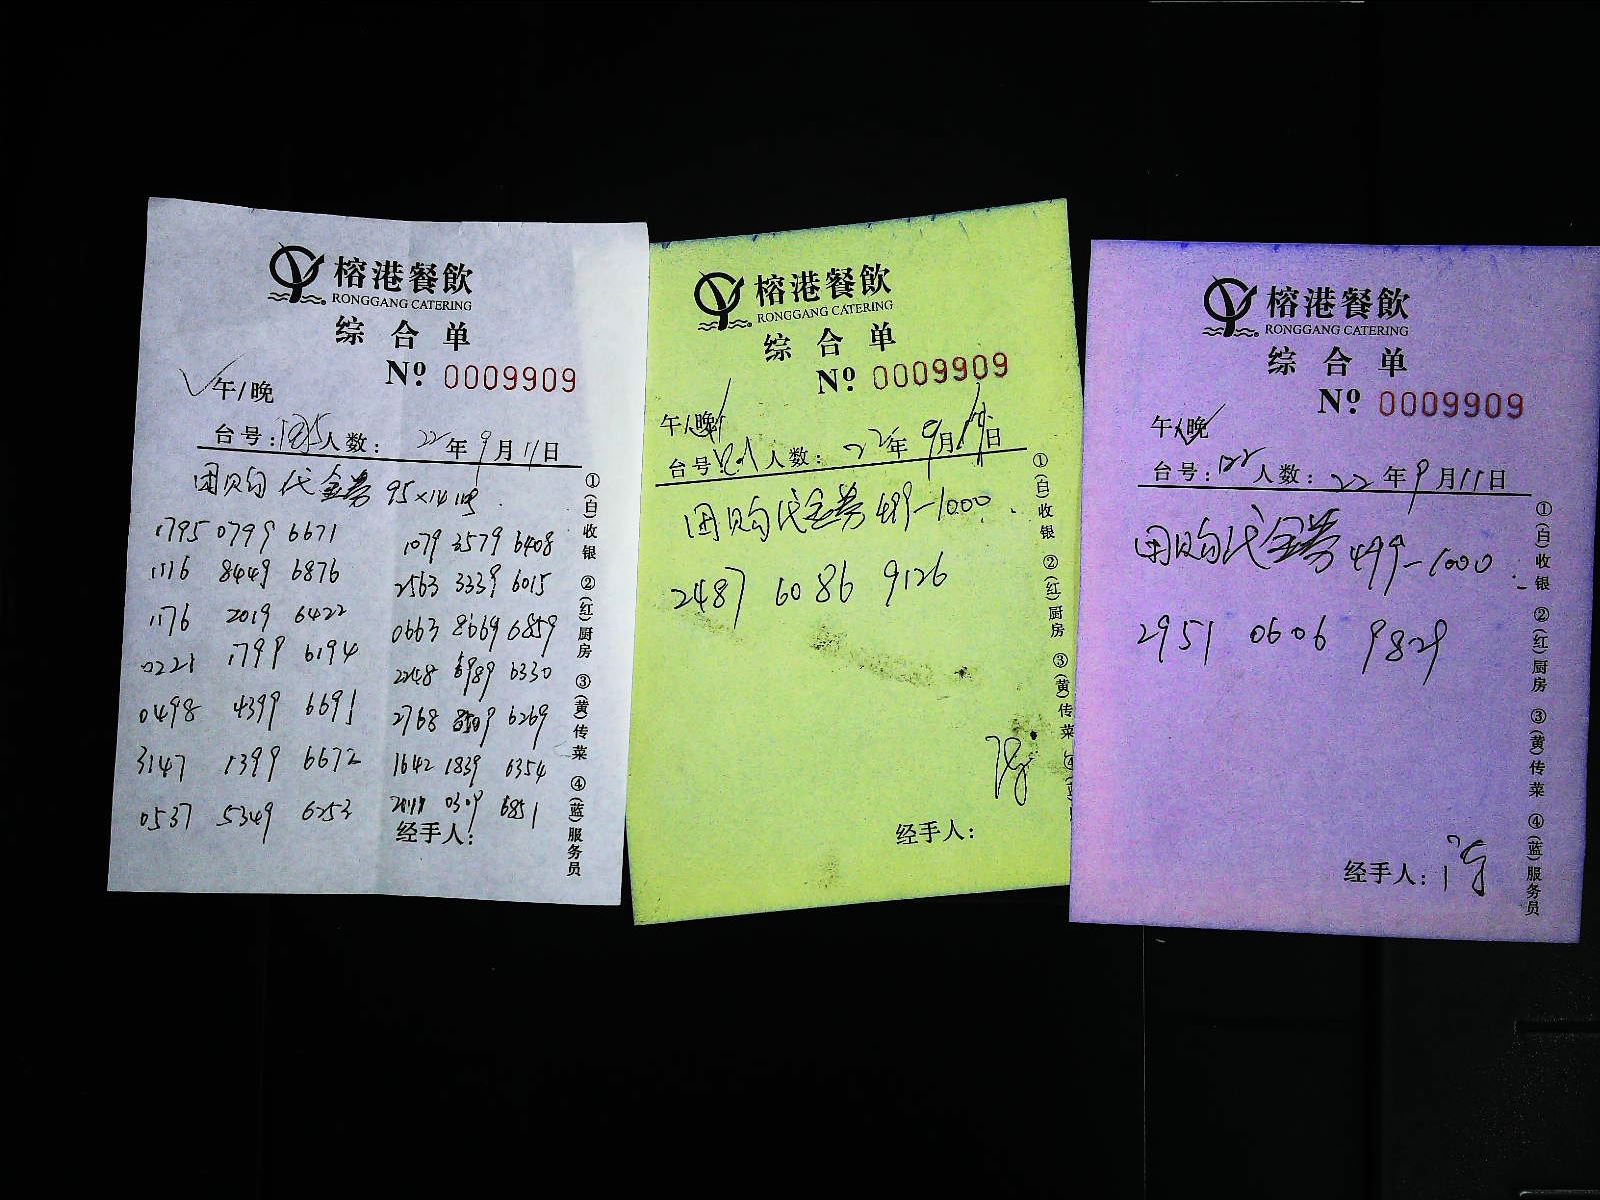 榕港餐飲
RONGGANG CATERING
综合单
Nº 0009909
午/晚
台号: 人数: 22年9月11日
团购代金券 95×14
1795 0799 6671
1116 8449 6876
1176 2019 6422
0221 1799 6194
0498 4399 6691
3147 1399 6672
0537 5349 6253
1079 3579 6408
2563 3339 6015
0663 8669 6859
2248 6989 6330
2768 6269
1642 1839 6354
2011 0309 6851
经手人:
①(白)收银 ②(红)厨房 ③(黄)传菜 ④(蓝)服务员
榕港餐飲
RONGGANG CATERING
综合单
Nº 0009909
午/晚
台号 人数: 22年9月 日
团购代金券 499-1000
2487 6086 9126
经手人:
①(白)收银 ②(红)厨房 ③(黄)传菜 ④
榕港餐飲
RONGGANG CATERING
综合单
Nº 0009909
午/晚
台号: 122 人数: 22年9月11日
团购代金券 499-1000
2951 0606 9829
经手人:
①(白)收银 ②(红)厨房 ③(黄)传菜 ④(蓝)服务员